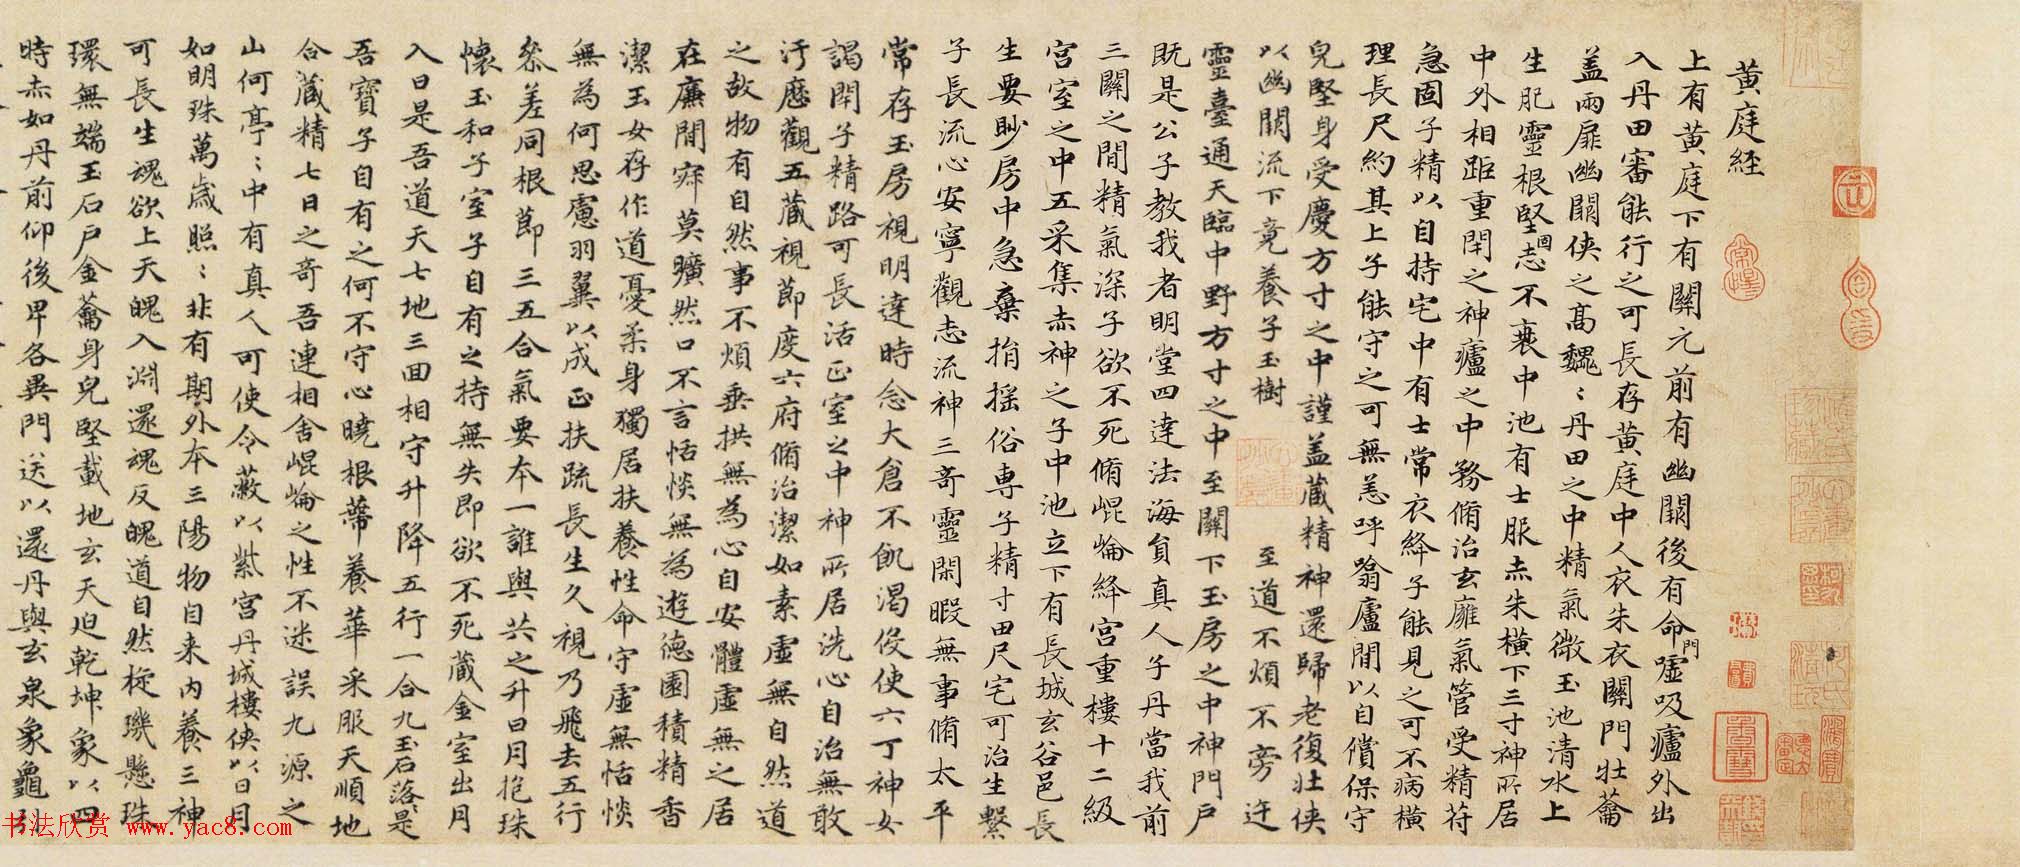 黃庭經
上有黃庭下有關元前有幽闕後有命門噓吸廬外出
入丹田審能行之可長存黃庭中人衣朱衣關門壯蘥
盖兩扉幽闕俠之高魏〻丹田之中精氣微玉池清水上
生肥靈根堅固志不衰中池有士服赤朱橫下三寸神所居
中外相距重閉之神廬之中務脩治玄廱氣管受精苻
急固子精以自持宅中有士常衣絳子能見之可不病橫
理長尺約其上子能守之可無恙呼噏廬間以自償保守
皃堅身受慶方寸之中謹盖藏精神還歸老復壯俠
以幽闕流下竟養子玉樹 至道不煩不旁迕
靈臺通天臨中野方寸之中至關下玉房之中神門戶
既是公子教我者明堂四達法海負真人子丹當我前
三關之間精氣深子欲不死脩崐崘絳宮重樓十二級
宮室之中五采集赤神之子中池立下有長城玄谷邑長
生要眇房中急棄捐搖俗專子精寸田尺宅可治生繫
子長流心安寧觀志流神三奇靈閑暇無事脩太平
常存玉房視明達時念大倉不飢渴侵使六丁神女
謁閉子精路可長活正室之中神所居洗心自治無敢
汙歷觀五藏視節度六府脩治潔如素虛無自然道
之故物有自然事不煩垂拱無為心自安體虛無之居
在廉間寂莫曠然口不言恬惔無為遊德園積精香
潔玉女存作道憂柔身獨居扶養性命守虛無恬惔
無為何思慮羽翼以成正扶疏長生久視乃飛去五行
叅差同根節三五合氣要本一誰與共之升日月抱珠
懷玉和子室子自有之持無失即欲不死藏金室出月
入日是吾道天七地三回相守升降五行一合九玉石落是
吾寶子自有之何不守心曉根蔕養華采服天順地
合藏精七日之奇吾連相舍崐崘之性不迷誤九源之
山何亭〻中有真人可使令蔽以紫宮丹城樓俠以日月
如明珠萬歲照〻非有期外本三陽物自来內養三神
可長生魂欲上天魄入淵還魂反魄道自然㧡璣懸珠
環無端玉石戶金蘥身皃堅載地玄天迫乾坤象以四
時赤如丹前仰後卑各異門送以還丹與玄泉象龜引
书法欣赏 www.yac8.com